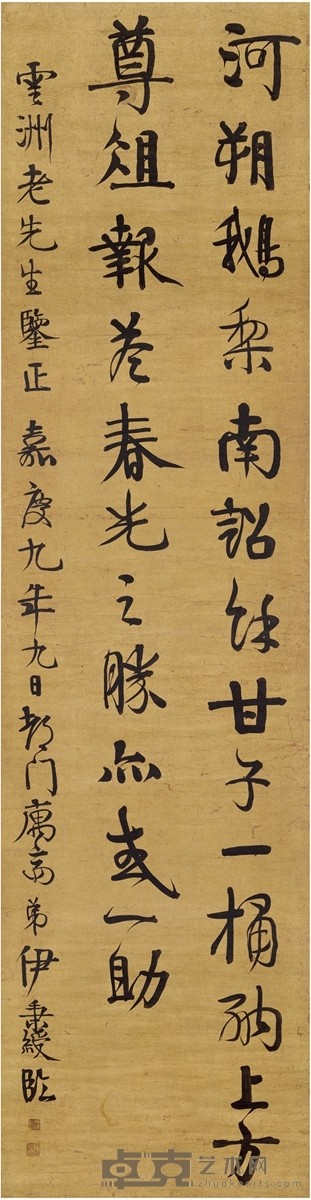 河朔鵝梨南詔餘甘子一桶納上方
尊俎報荅春光之勝亦或一助
雲洲老先生鑒正 嘉慶九年九日都門寓齋弟伊秉綬臨
卓克艺术网
zhuokearts.com